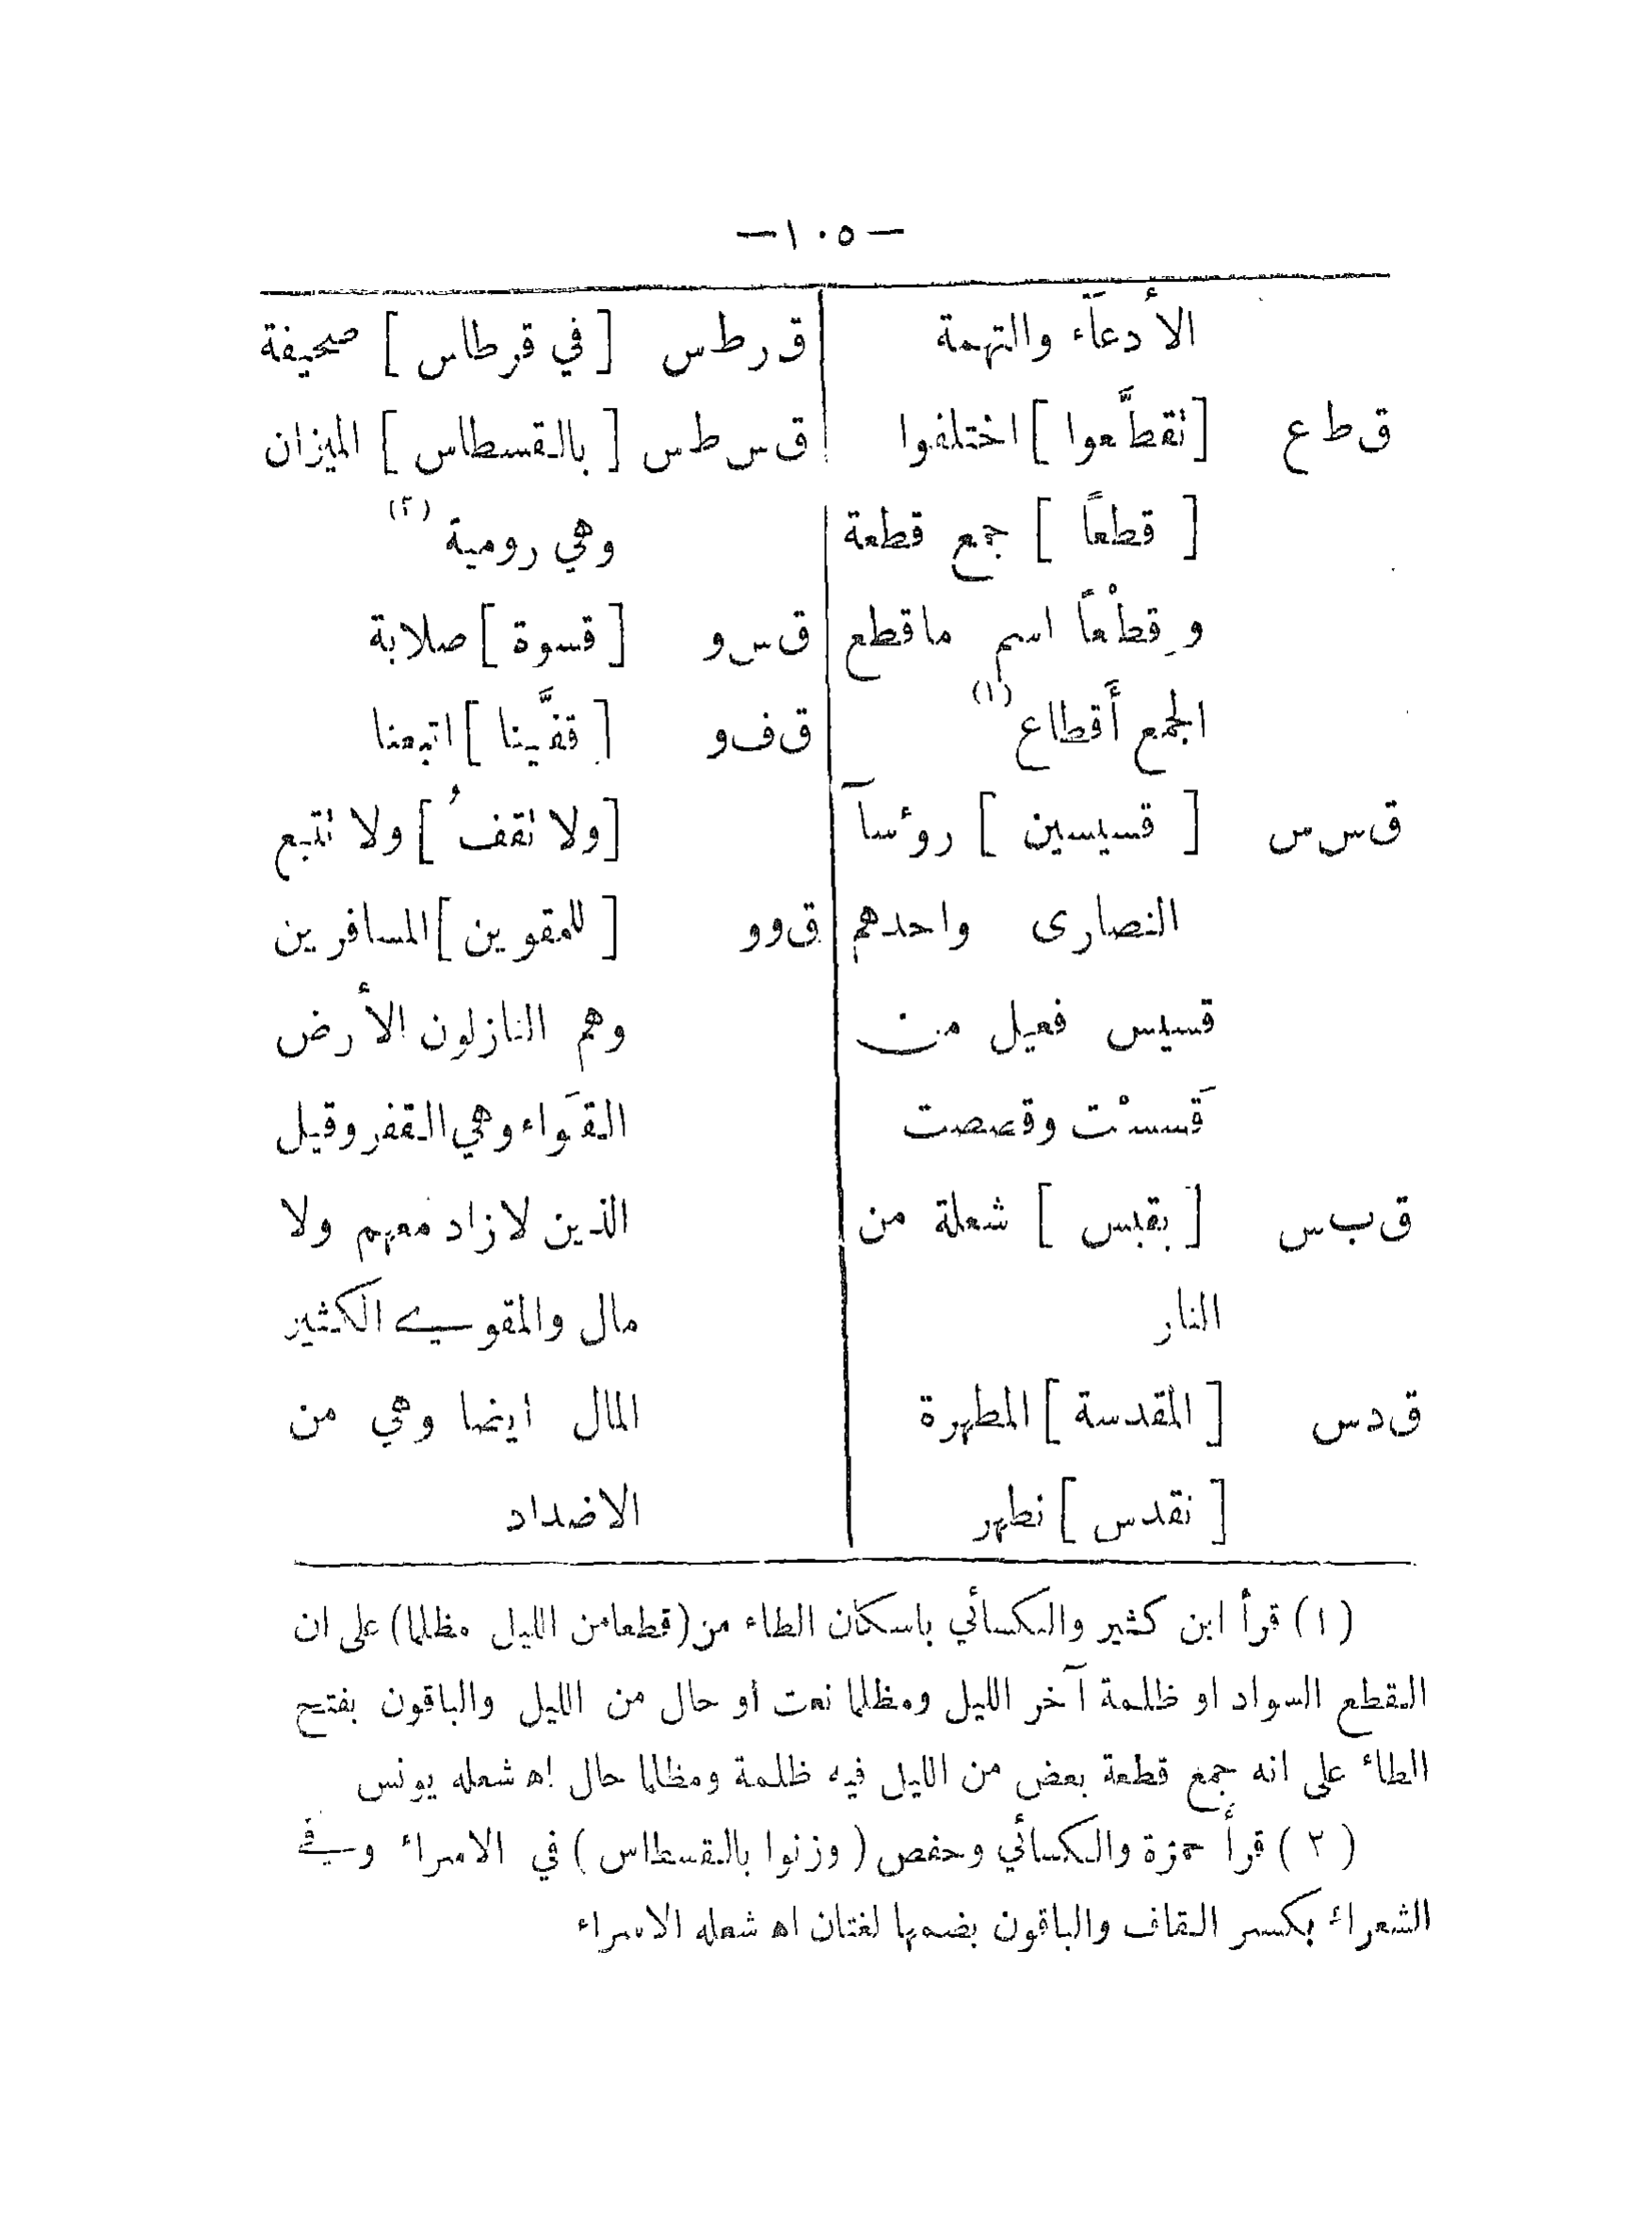 —١٠٥—
الأدعآء والتهمة
ق ط ع [تقطَّعوا] اختلفوا
[قطعاً] جمع قطعة
وقِطْعاً اسم ماقطع
الجمع أَقطاع (١)
ق س س [قسيسين] رؤسآ
النصارى واحدهم
قسيس فعيل من
قَسسْت وقصصت
ق ب س [بقبس] شعلة من
النار
ق د س [المقدسة] المطهرة
[نقدس] نطهر
ق ر ط س [في قرطاس] صحيفة
ق س ط س [بالقسطاس] الميزان
وهي رومية (٢)
ق س و [قسوة] صلابة
ق ف و [قفَّينا] اتبعنا
[ولا تقفُ] ولا تتبع
ق و و [للمقوين] المسافرين
وهم النازلون الأرض
القَواء وهي القفر وقيل
الذين لازاد معهم ولا
مال والمقوي الكثير
المال ايضا وهي من
الاضداد
(١) قرأ ابن كثير والكسائي باسكان الطاء من (قطعا من الليل مظلما) على ان
القطع السواد او ظلمة آخر الليل ومظلما نعت او حال من الليل والباقون بفتح
الطاء على انه جمع قطعة بعض من الليل فيه ظلمة ومظلما حال اه شعله يونس
(٢) قرأ حمزة والكسائي وحفص (وزنوا بالقسطاس) في الاسراء وفي
الشعراء بكسر القاف والباقون بضمها لغتان اه شعله الاسراء